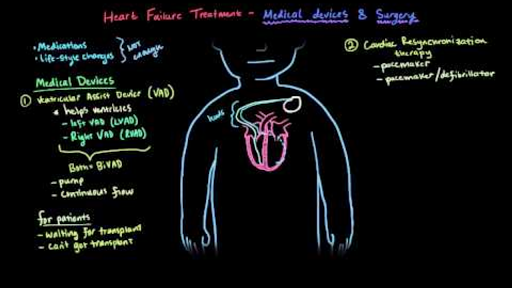 Heart Failure Treatment - Medical devices & Surgery
• Medications
• Life-style changes
not enough
Medical Devices
① Ventricular Assist Device (VAD)
* helps ventricles
- Left VAD (LVAD)
- Right VAD (RVAD)
Both = BiVAD
- pump
- continuous flow
for patients
- waiting for transplant
- can't get transplant
leads
② Cardiac Resynchronization
therapy
- pacemaker
- pacemaker/defibrillator